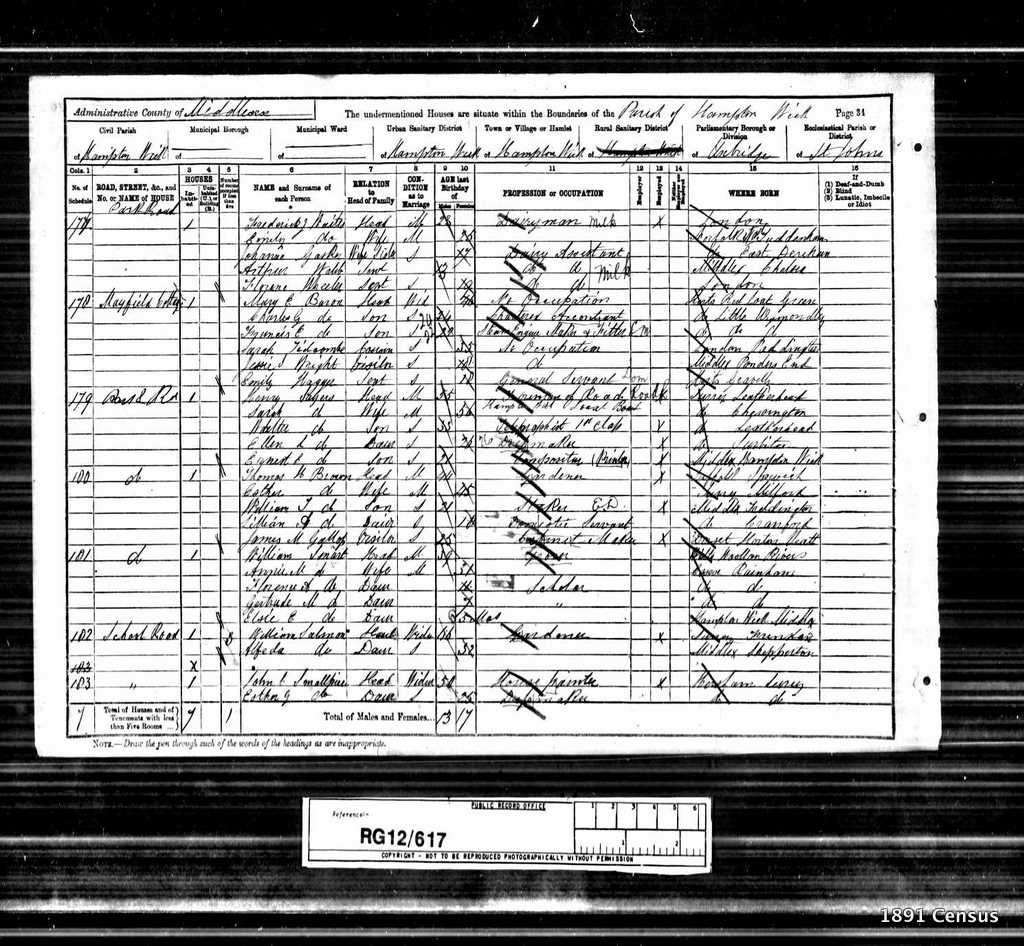 Administrative County of Middlesex The undermentioned Houses are situate within the Boundaries of the Parish of Hampton Wick Page 31
Civil Parish Municipal Borough Municipal Ward Urban Sanitary District Town or Village or Hamlet Rural Sanitary District Parliamentary Borough or Division Ecclesiastical Parish or District
of Hampton Wick of of Hampton Wick of Hampton Wick of of Uxbridge of St Johns
Cols. 1 2 3 4 5 6 7 8 9 10 11 12 13 14 15 16
No. of Schedule ROAD, STREET, &c., and No. or NAME of HOUSE HOUSES Inhabited Uninhabited (U.), or Building (B.) Number of rooms occupied if less than five NAME and Surname of each Person RELATION to Head of Family CONDITION as to Marriage AGE last Birthday of Males Females PROFESSION or OCCUPATION Employer Employed Neither Employer nor Employed WHERE BORN If (1) Deaf-and-Dumb (2) Blind (3) Lunatic, Imbecile or Idiot
177 Park Road 1 Frederick J Head M 28 Dairyman Milk X London
Emily do Wife M 25 Norfolk
Johanna Wife's Sister S Dairy Assistant do East Dereham
Arthur Webb Servt do do Milk Middlx Chelsea
Servt S do do London
178 Mayfield Cottage 1 Mary E Baron Head Wid No Occupation Herts Green
Charles G do Son S 24 Chartered Accountant do Little Wymondly
Francis E do Son S 20 Maker & Fitter do do
Sarah Cousin S 35 No Occupation London Paddington
Jessie Wright Visitor S do Middlx Ponders End
Emily Servt S 18 General Servant Dom Herts Graveley
179 Park Rd 1 Henry Sayers Head M 55 Foreman of Roads Surrey Leatherhead
Sarah do Wife M 56 Hampton Wick Local Board do Chessington
Walter do Son S 33 Telegraphist 1st Class X do Leatherhead
Ellen L do Daur S Dressmaker X do Surbiton
Ernest E do Son S 21 Compositor (Printer) X Middlx Hampton Wick
180 do 1 Thomas H Brown Head M Gardener X Suffolk Ipswich
Esther do Wife M Surrey Milford
William T do Son S 21 Baker E.D. X Middlx Teddington
Lillian A do Daur S 18 Domestic Servant do Cranford
James M Visitor S 25 Cabinet Maker X Dorset
181 do 1 William Smart Head M 39 Wilts
Annie M do Wife M 31 Rainham
Florence A do Daur Scholar do do
Gertrude M do Daur " do do
Elsie E do Daur 5 Mos Hampton Wick Middlx
182 School Road 1 3 William Salmon Head Widr Gardener X Surrey
Alfreda do Daur S 32 Middlx Shepperton
183 X
183 " 1 John C Smallpiece Head Widr 50 House Painter X Horsham
Esther J do Daur S 25 Dressmaker do do
7 Total of Houses and of Tenements with less than Five Rooms ... 7 1 Total of Males and Females... 13 17
NOTE.—Draw the pen through such of the words of the headings as are inappropriate.
PUBLIC RECORD OFFICE
Reference:-
RG12/617
1 2 3 4 5 6
1 2
COPYRIGHT - NOT TO BE REPRODUCED PHOTOGRAPHICALLY WITHOUT PERMISSION
1891 Census